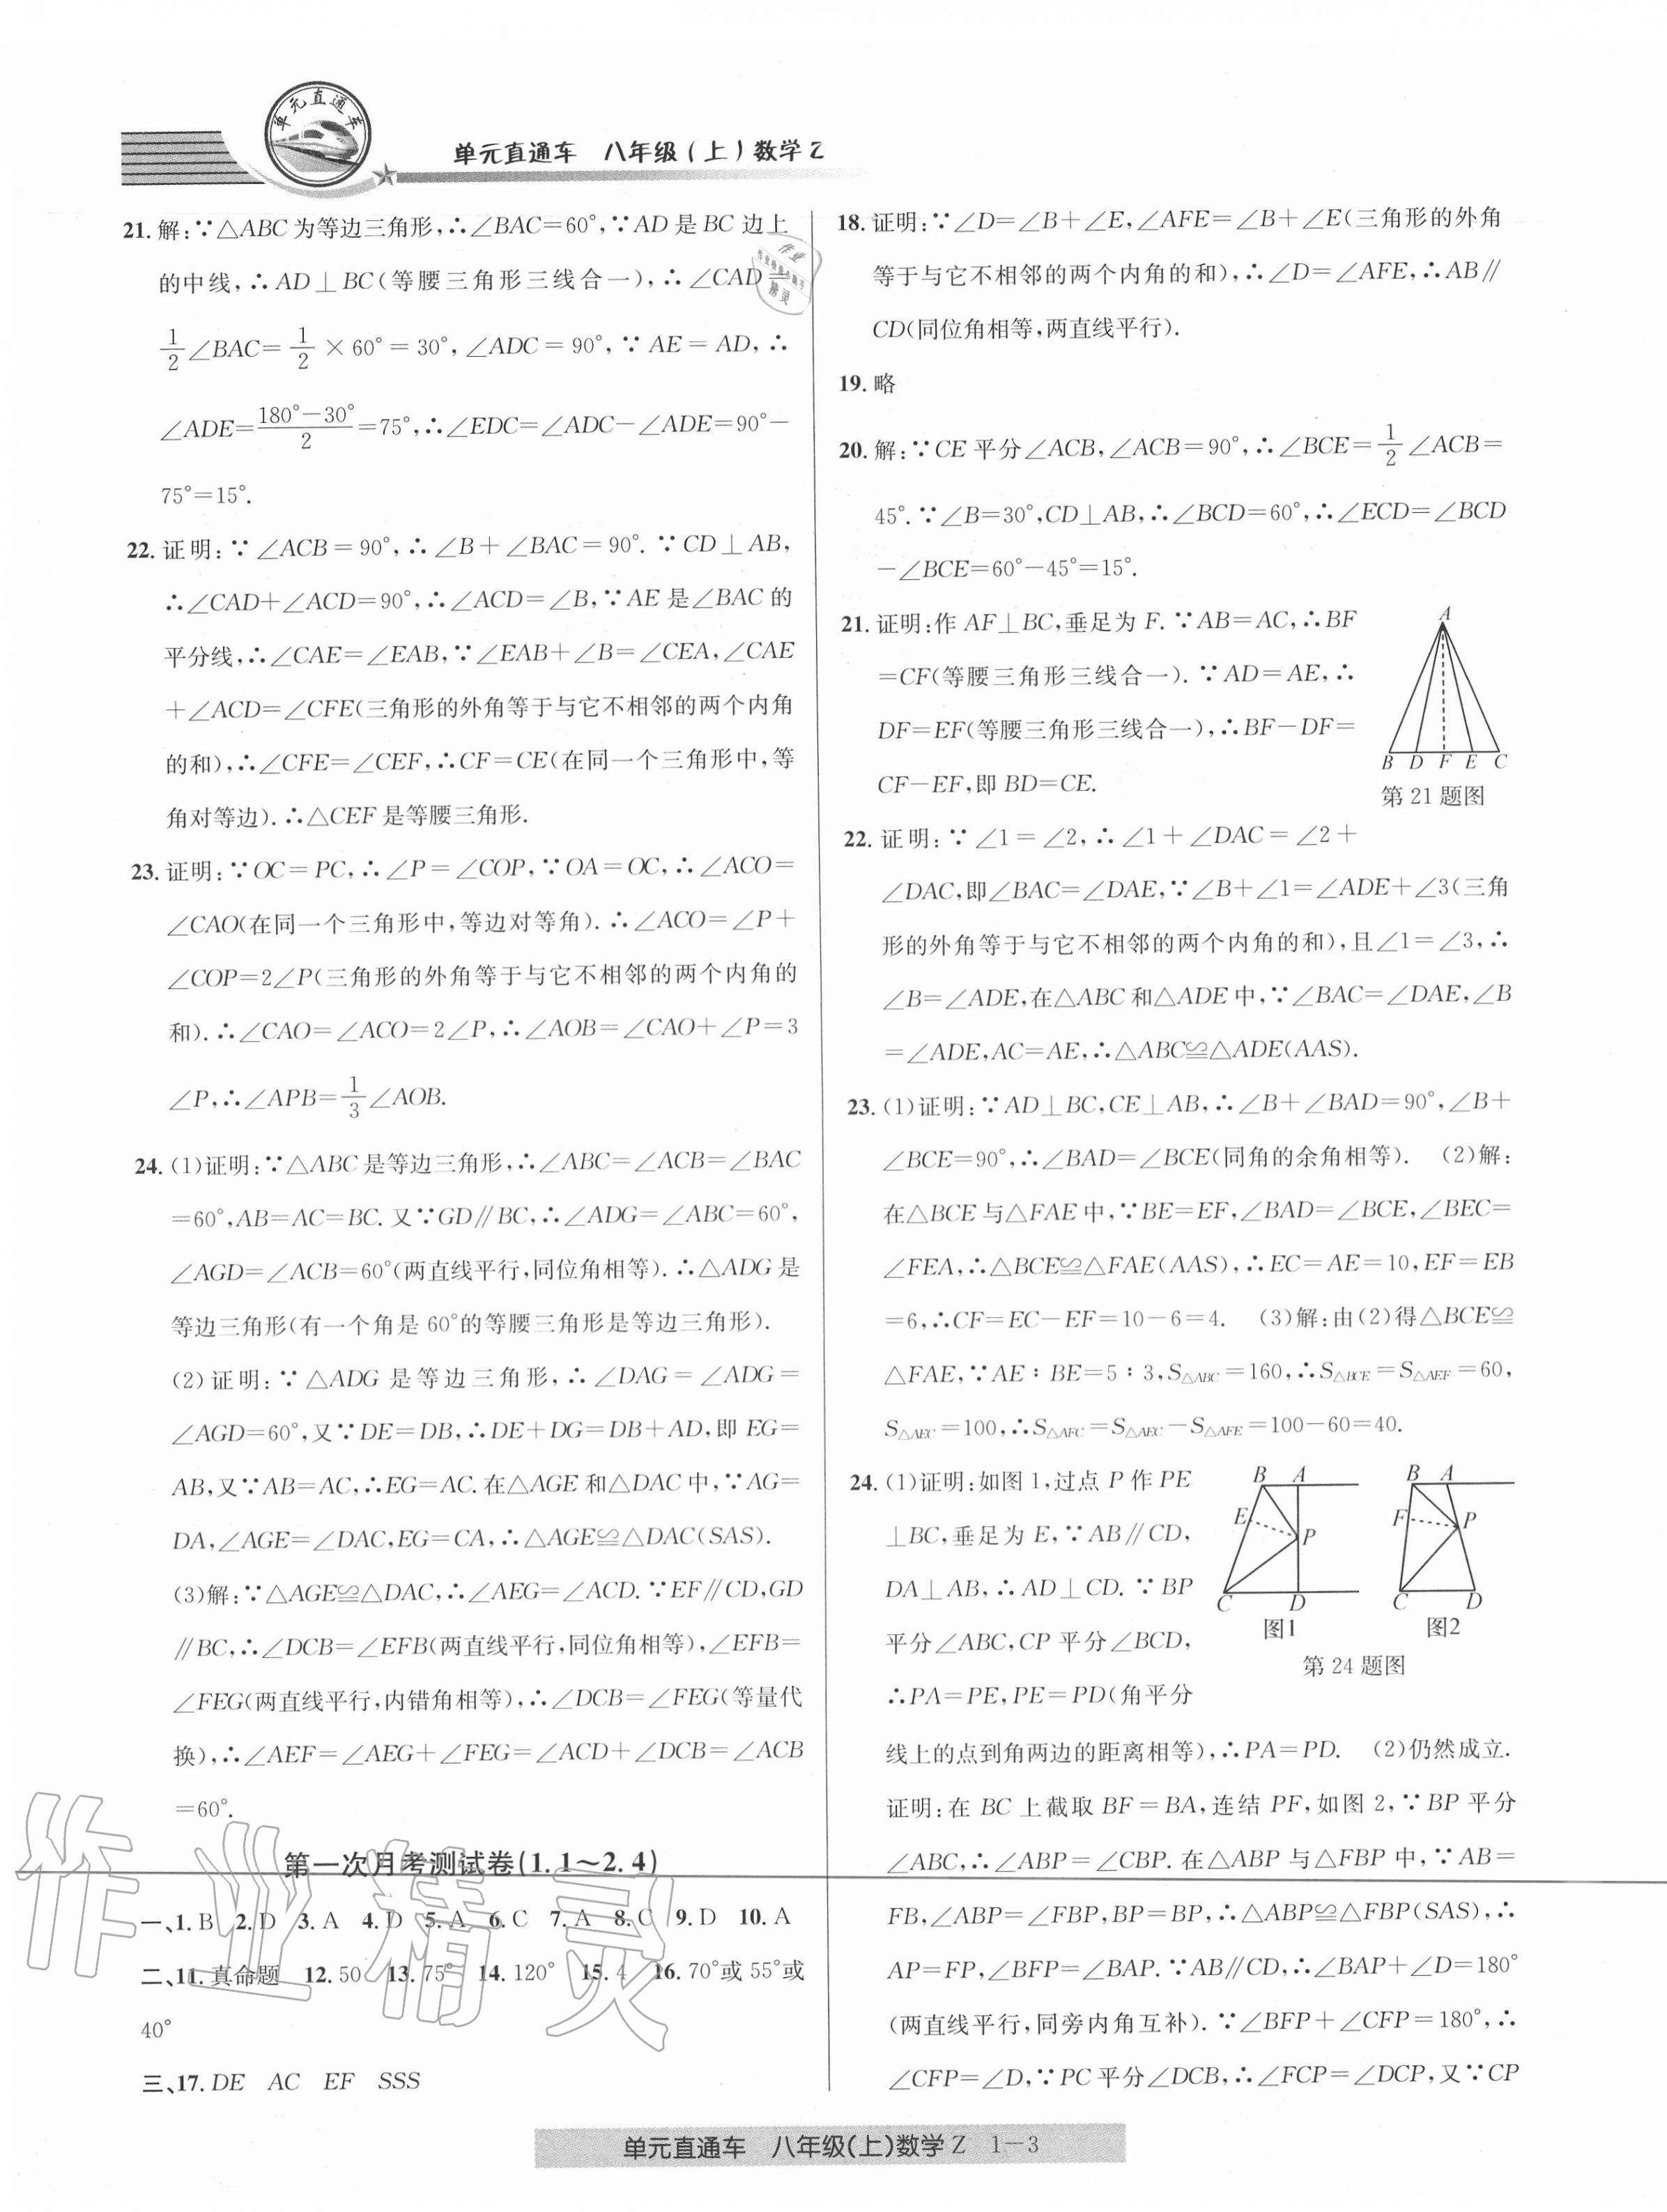 单元直通车
单元直通车 八年级(上)数学Z
21. 解:∵△ABC为等边三角形,∴∠BAC=60°,∵AD是BC边上
的中线,∴AD⊥BC(等腰三角形三线合一),∴∠CAD=
1/2∠BAC=1/2×60°=30°,∠ADC=90°,∵AE=AD,∴
∠ADE=(180°-30°)/2=75°,∴∠EDC=∠ADC-∠ADE=90°-
75°=15°.
22. 证明:∵∠ACB=90°,∴∠B+∠BAC=90°.∵CD⊥AB,
∴∠CAD+∠ACD=90°,∴∠ACD=∠B,∵AE是∠BAC的
平分线,∴∠CAE=∠EAB,∵∠EAB+∠B=∠CEA,∠CAE
+∠ACD=∠CFE(三角形的外角等于与它不相邻的两个内角
的和),∴∠CFE=∠CEF,∴CF=CE(在同一个三角形中,等
角对等边).∴△CEF是等腰三角形.
23. 证明:∵OC=PC,∴∠P=∠COP,∵OA=OC,∴∠ACO=
∠CAO(在同一个三角形中,等边对等角).∴∠ACO=∠P+
∠COP=2∠P(三角形的外角等于与它不相邻的两个内角的
和).∴∠CAO=∠ACO=2∠P,∴∠AOB=∠CAO+∠P=3
∠P,∴∠APB=1/3∠AOB.
24. (1)证明:∵△ABC是等边三角形,∴∠ABC=∠ACB=∠BAC
=60°,AB=AC=BC.又∵GD∥BC,∴∠ADG=∠ABC=60°,
∠AGD=∠ACB=60°(两直线平行,同位角相等).∴△ADG是
等边三角形(有一个角是60°的等腰三角形是等边三角形).
(2)证明:∵△ADG是等边三角形,∴∠DAG=∠ADG=
∠AGD=60°,又∵DE=DB,∴DE+DG=DB+AD,即EG=
AB,又∵AB=AC,∴EG=AC.在△AGE和△DAC中,∵AG=
DA,∠AGE=∠DAC,EG=CA,∴△AGE≌△DAC(SAS).
(3)解:∵△AGE≌△DAC,∴∠AEG=∠ACD.∵EF∥CD,GD
∥BC,∴∠DCB=∠EFB(两直线平行,同位角相等),∠EFB=
∠FEG(两直线平行,内错角相等),∴∠DCB=∠FEG(等量代
换),∴∠AEF=∠AEG+∠FEG=∠ACD+∠DCB=∠ACB
=60°.
第一次月考测试卷(1.1~2.4)
一、1. B 2. D 3. A 4. D 5. A 6. C 7. A 8. C 9. D 10. A
二、11. 真命题 12. 50 13. 75° 14. 120° 15. 4 16. 70°或55°或
40°
三、17. DE AC EF SSS
18. 证明:∵∠D=∠B+∠E,∠AFE=∠B+∠E(三角形的外角
等于与它不相邻的两个内角的和),∴∠D=∠AFE,∴AB∥
CD(同位角相等,两直线平行).
19. 略
20. 解:∵CE平分∠ACB,∠ACB=90°,∴∠BCE=1/2∠ACB=
45°.∵∠B=30°,CD⊥AB,∴∠BCD=60°,∴∠ECD=∠BCD
-∠BCE=60°-45°=15°.
21. 证明:作AF⊥BC,垂足为F.∵AB=AC,∴BF
=CF(等腰三角形三线合一).∵AD=AE,∴
DF=EF(等腰三角形三线合一),∴BF-DF=
CF-EF,即BD=CE.
A
B D F E C
第21题图
22. 证明:∵∠1=∠2,∴∠1+∠DAC=∠2+
∠DAC,即∠BAC=∠DAE,∵∠B+∠1=∠ADE+∠3(三角
形的外角等于与它不相邻的两个内角的和),且∠1=∠3,∴
∠B=∠ADE,在△ABC和△ADE中,∵∠BAC=∠DAE,∠B
=∠ADE,AC=AE,∴△ABC≌△ADE(AAS).
23. (1)证明:∵AD⊥BC,CE⊥AB,∴∠B+∠BAD=90°,∠B+
∠BCE=90°,∴∠BAD=∠BCE(同角的余角相等). (2)解:
在△BCE与△FAE中,∵BE=EF,∠BAD=∠BCE,∠BEC=
∠FEA,∴△BCE≌△FAE(AAS),∴EC=AE=10,EF=EB
=6,∴CF=EC-EF=10-6=4. (3)解:由(2)得△BCE≌
△FAE,∵AE∶BE=5∶3,S△ABC=160,∴S△BCE=S△AEF=60,
S△AEC=100,∴S△AFC=S△AEC-S△AFE=100-60=40.
24. (1)证明:如图1,过点P作PE
⊥BC,垂足为E,∵AB∥CD,
DA⊥AB,∴AD⊥CD.∵BP
平分∠ABC,CP平分∠BCD,
∴PA=PE,PE=PD(角平分
B A
E
P
C D
图1
B A
F P
C D
图2
第24题图
线上的点到角两边的距离相等),∴PA=PD. (2)仍然成立.
证明:在BC上截取BF=BA,连结PF,如图2,∵BP平分
∠ABC,∴∠ABP=∠CBP.在△ABP与△FBP中,∵AB=
FB,∠ABP=∠FBP,BP=BP,∴△ABP≌△FBP(SAS),∴
AP=FP,∠BFP=∠BAP.∵AB∥CD,∴∠BAP+∠D=180°
(两直线平行,同旁内角互补).∵∠BFP+∠CFP=180°,∴
∠CFP=∠D,∵PC平分∠DCB,∴∠FCP=∠DCP,又∵CP
作业精灵
单元直通车 八年级(上)数学Z 1-3